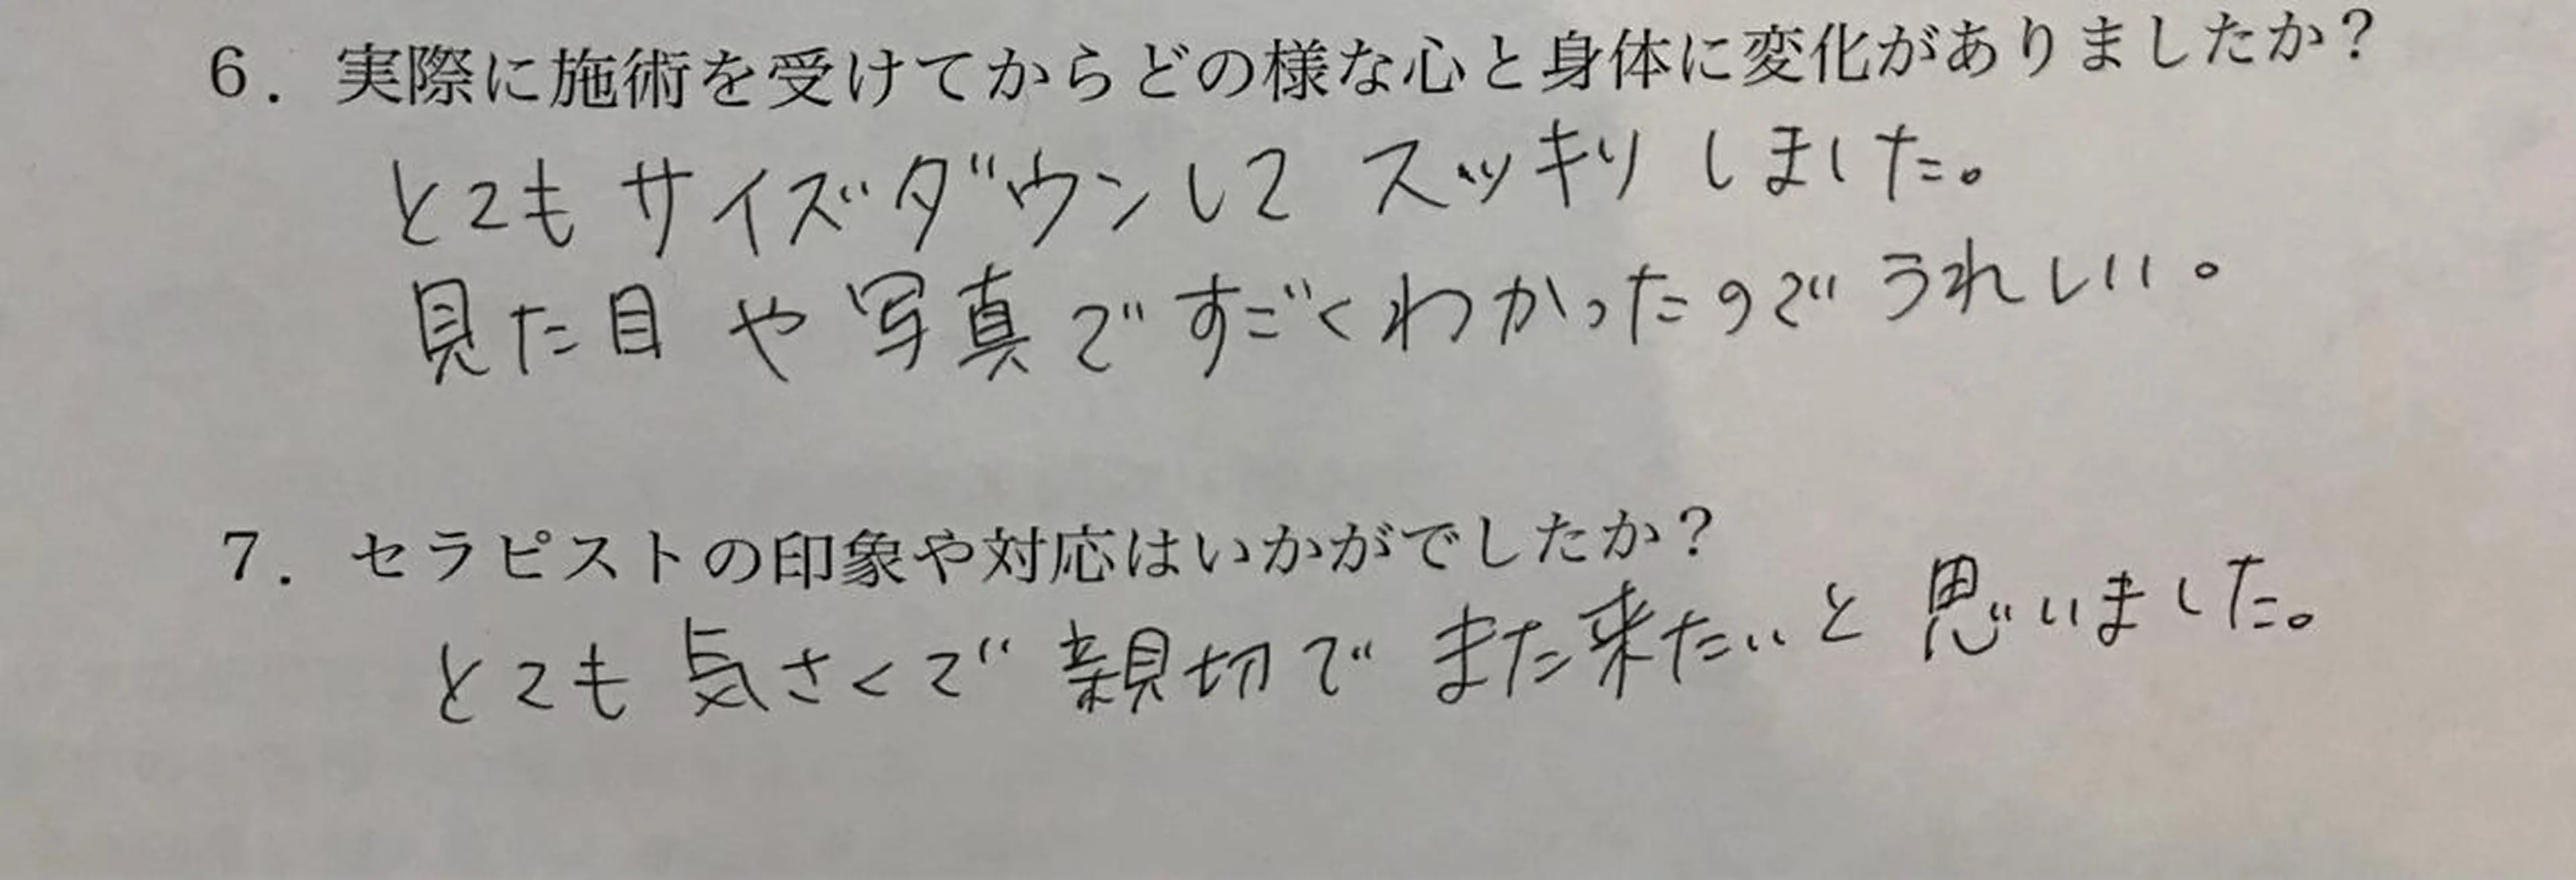 6．実際に施術を受けてからどの様な心と身体に変化がありましたか？
とてもサイズダウンして スッキリしました。
見た目や写真ですごくわかったのでうれしい。
7．セラピストの印象や対応はいかがでしたか？
とても気さくで親切でまた来たいと思いました。